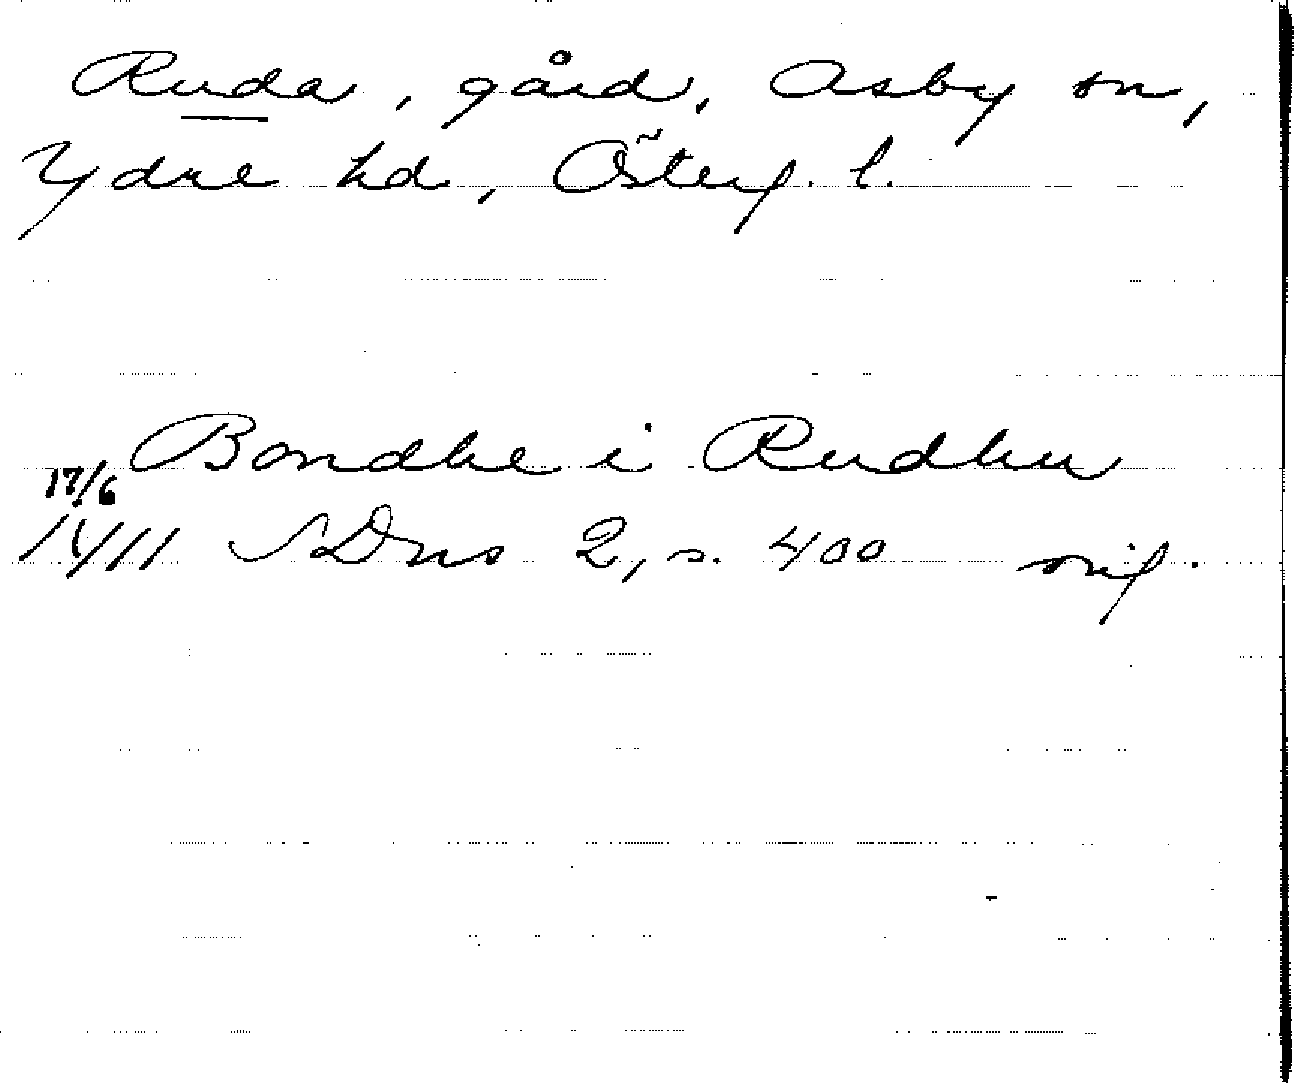 Ruda, gård, Asby sn,
Ydre hd, Österg. l.
Bondhe i Rudhu
17/6
1411 SDns 2, s. 400 orig.